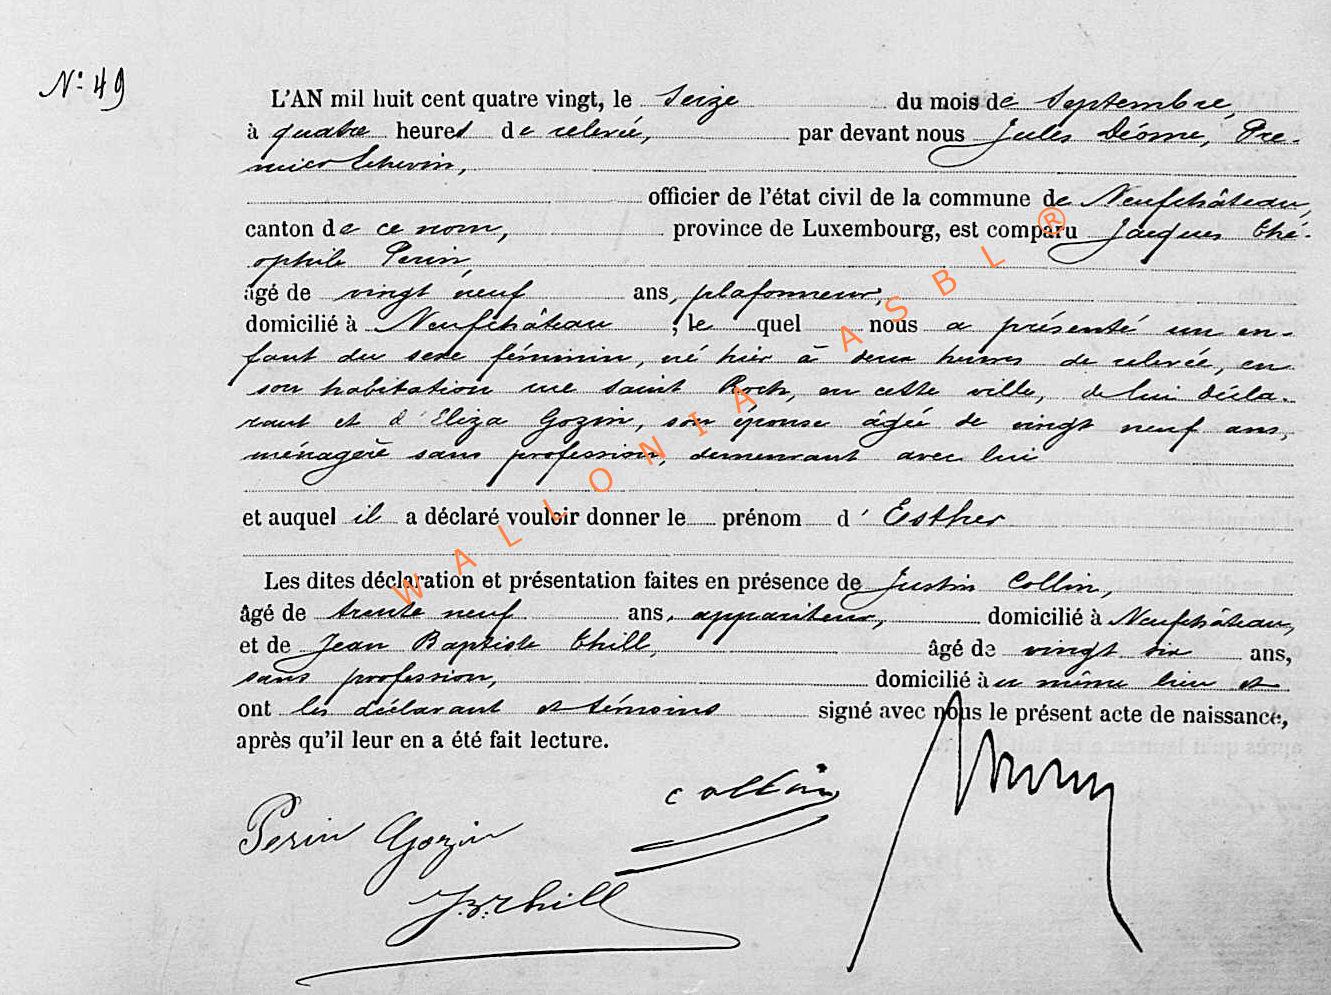 N° 49
L'AN mil huit cent quatre vingt, le Seize du mois de Septembre,
à quatre heures de relevée, par devant nous Jules Déome, Pre-
mier Echevin,
officier de l'état civil de la commune de Neufchâteau,
canton de ce nom, province de Luxembourg, est comparu Jacques Thé-
ophile Perin,
âgé de vingt neuf ans, plafonneur,
domicilié à Neufchâteau ; le quel nous a présenté un en-
fant du sexe féminin, né hier à deux heures de relevée, en
son habitation rue Saint Roch, en cette ville, de lui décla-
rant et d'Eliza Gozin, son épouse âgée de vingt neuf ans,
ménagère sans profession, demeurant avec lui
et auquel il a déclaré vouloir donner le prénom d'Esther
Les dites déclaration et présentation faites en présence de Justin Collin,
âgé de trente neuf ans, appariteur, domicilié à Neufchâteau,
et de Jean Baptiste Thill, âgé de vingt six ans,
sans profession, domicilié à même lieu et
ont les déclarant et témoins signé avec nous le présent acte de naissance,
après qu'il leur en a été fait lecture.
Collin
Perin Gozin
J.B. Thill
WALLONIA ASBL ®